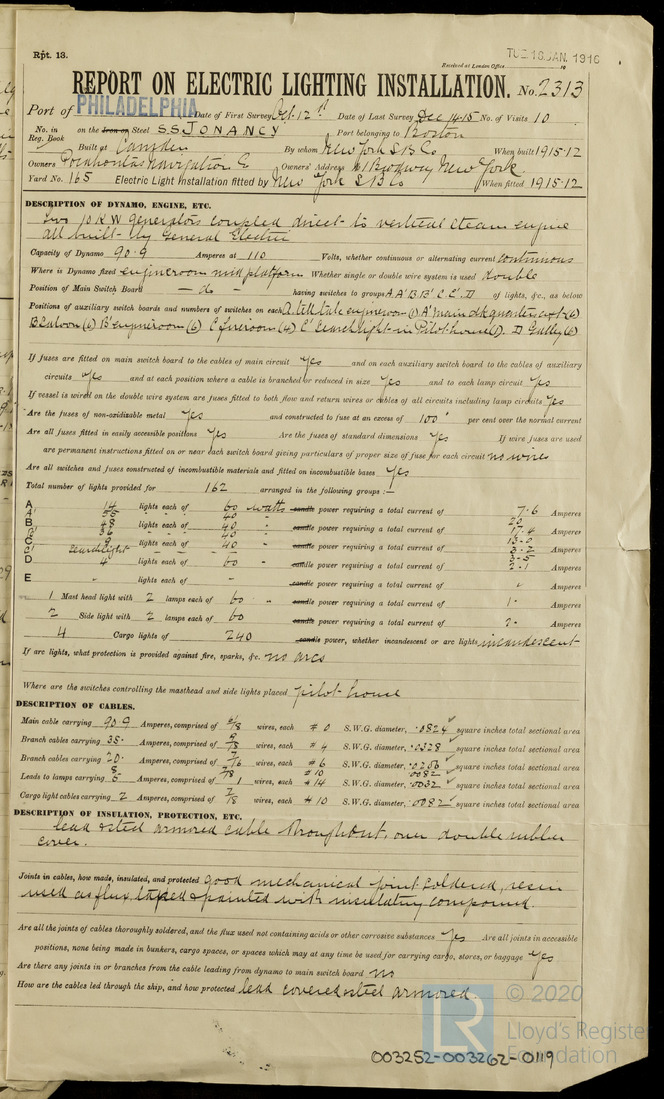 Rpt. 13.
Received at London Office
TUE 18 JAN. 1916
19
REPORT ON ELECTRIC LIGHTING INSTALLATION. No. 2313
Port of PHILADELPHIA Date of First Survey Oct. 12th Date of Last Survey Dec 14-15 No. of Visits 10
No. in Reg. Book on the Iron or Steel S.S. JONANCY Port belonging to Boston
Built at Camden By whom New York S B Co When built 1915-12
Owners Pocahontas Navigation Co Owners' Address #1 Broadway New York
Yard No. 165 Electric Light Installation fitted by New York S B Co When fitted 1915-12
DESCRIPTION OF DYNAMO, ENGINE, ETC.
Two 10 KW Generators coupled direct to vertical steam engine
all built by General Electric
Capacity of Dynamo 90.9 Amperes at 110 Volts, whether continuous or alternating current continuous
Where is Dynamo fixed engineroom mid platform Whether single or double wire system is used double
Position of Main Switch Board — do — having switches to groups A A' B B' C C' D of lights, &c., as below
Positions of auxiliary switch boards and numbers of switches on each A. telltale engineroom (1) A' main dk quarters
B Saloon (6) B' engineroom (6) C fireroom (4) C' Searchlight in Pilothouse (1). D Galley (6)
If fuses are fitted on main switch board to the cables of main circuit yes and on each auxiliary switch board to the cables of auxiliary
circuits yes and at each position where a cable is branched or reduced in size yes and to each lamp circuit yes
If vessel is wired on the double wire system are fuses fitted to both flow and return wires or cables of all circuits including lamp circuits yes
Are the fuses of non-oxidisable metal yes and constructed to fuse at an excess of 100 per cent over the normal current
Are all fuses fitted in easily accessible positions yes Are the fuses of standard dimensions yes If wire fuses are used
are permanent instructions fitted on or near each switch board giving particulars of proper size of fuse for each circuit no wires
Are all switches and fuses constructed of incombustible materials and fitted on incombustible bases yes
Total number of lights provided for 162 arranged in the following groups :—
A 14 lights each of 60 watts candle power requiring a total current of 7.6 Amperes
A' 40 20
B 48 lights each of 40 candle power requiring a total current of 17.4 Amperes
B' 36 40 13.0
C 9 lights each of 40 candle power requiring a total current of 3.2 Amperes
C' searchlight
D 4 lights each of 60 candle power requiring a total current of 2.1 Amperes
E lights each of candle power requiring a total current of Amperes
1 Mast head light with 2 lamps each of 60 candle power requiring a total current of 1. Amperes
2 Side light with 2 lamps each of 60 candle power requiring a total current of 2. Amperes
4 Cargo lights of 240 candle power, whether incandescent or arc lights incandescent
If arc lights, what protection is provided against fire, sparks, &c. no arcs
Where are the switches controlling the masthead and side lights placed pilot house
DESCRIPTION OF CABLES.
Main cable carrying 90.9 Amperes, comprised of wires, each #0 S.W.G. diameter, .0824 square inches total sectional area
Branch cables carrying 38. Amperes, comprised of wires, each #4 S.W.G. diameter, .0328 square inches total sectional area
Branch cables carrying 20. Amperes, comprised of wires, each #6 S.W.G. diameter, .0206 square inches total sectional area
#10 .0082
Leads to lamps carrying 5 Amperes, comprised of 1 wires, each #14 S.W.G. diameter, .0032 square inches total sectional area
Cargo light cables carrying 2 Amperes, comprised of 7/18 wires, each #10 S.W.G. diameter, .0082 square inches total sectional area
DESCRIPTION OF INSULATION, PROTECTION, ETC.
lead & steel armored cable throughout, over double rubber
cover.
Joints in cables, how made, insulated, and protected good mechanical joint soldered, resin
used as flux taped & painted with insulating compound.
Are all the joints of cables thoroughly soldered, and the flux used not containing acids or other corrosive substances yes Are all joints in accessible
positions, none being made in bunkers, cargo spaces, or spaces which may at any time be used for carrying cargo, stores, or baggage yes
Are there any joints in or branches from the cable leading from dynamo to main switch board no
How are the cables led through the ship, and how protected lead covered & steel armored.
LR
© 2020
Lloyd's Register
Foundation
003252-003262-0119